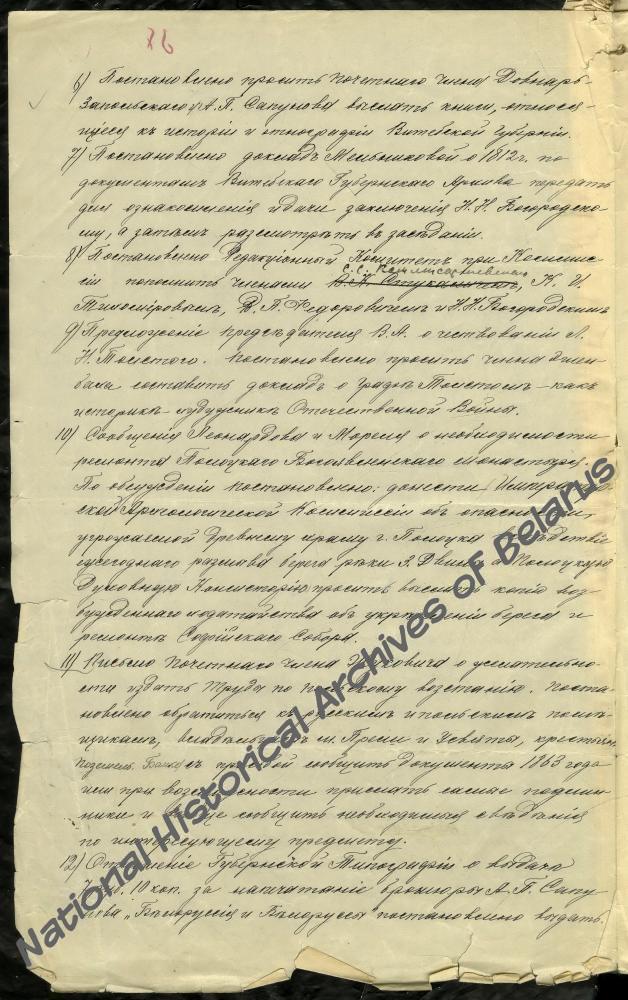 6) Постановлено просить почетнаго члена Довнаръ-
Запольскаго и А. П. Сапунова выслать книги, относя-
щіеся къ исторіи и этнографіи Витебской губерніи.
7) Постановлено докладъ Мельниковой о 1812 г. по
документамъ Витебскаго Губернскаго Архива передать
для ознакомленія и дачи заключенія Н. Н. Богородско-
му, а затѣмъ разсмотрѣть въ засѣданіи.
8) Постановлено Редакціонный Комитетъ при Коммис-
сіи пополнить членами К. И.
Тихомировымъ, В. П. Федоровичемъ и Н. Н. Богородскимъ
9) Предложеніе предсѣдателя В.А. о чествованіи Л.
Н. Толстого. Постановлено просить члена
составить докладъ о графѣ Толстомъ – какъ
историкѣ-художникѣ Отечественной Войны.
10) Сообщенія Леонардова и Мореля о необходимости
ремонта Полоцкаго Богоявленскаго монастыря.
По обсужденіи постановлено: донести Императорс-
кой Археологической Коммиссіи объ опасности,
угрожаемой древнему храму г. Полоцка вслѣдствіе
ежегоднаго размыва берега рѣки З. Двины, а Полоцкую
Духовную Консисторію просить выслать копію воз-
бужденнаго ходатайства объ укрѣпленіи берега и
ремонтѣ Софійскаго Собора.
11) Письмо почетнаго члена о желательно-
сти издать Труды по польскому возстанію. Поста-
новлено обратиться къ русскимъ и польскимъ помѣ-
щикамъ, владѣльцамъ м. и Усвяты, крестьян.
поземел. Банкъ съ просьбой сообщить документы 1863 года
или при возможности прислать самые подлин-
ники и сообщить необходимыя свѣдѣнія
по интересующему предмету.
12) Отношеніе Губернской Типографіи о выдачѣ
7 руб. 10 коп. за напечатаніе брошюры А. П. Сапу-
нова "Бѣлоруссія и Бѣлоруссы" постановлено выдать
National Historical Archives of Belarus